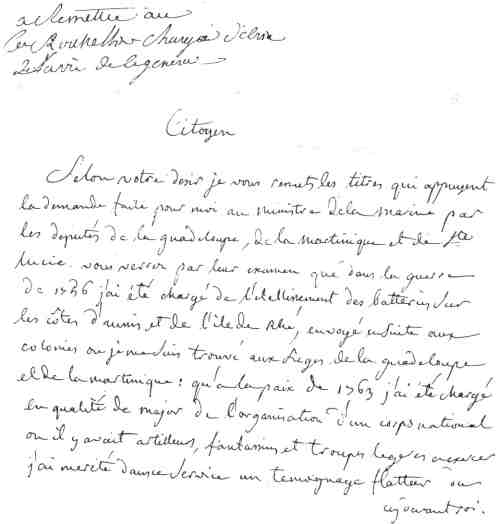 a remettre au
Cen Rouxelle chargé d'élire
de la
Citoyen
Selon votre desir je vous remets les titres qui appuyent
la demande faite pour moi au ministre de la marine par
les deputés de la guadeloupe, de la martinique et de Ste
lucie. vous verrez par leur examen que dans la guerre
de 1756 j'ai été chargé de l'etablissement des batteries sur
les côtes d'aunis et de l'ile de Rhé, envoyé ensuite aux
colonies ou je me suis trouvé aux sieges de la guadeloupe
et de la martinique : qu'a la paix de 1763 j'ai été chargé
en qualité de major de l'organisation d'un corps national
ou il y avait artilleurs, fantassins et troupes legeres
j'ai merité dans ce service un temoignage flatteur
ci-devant roi.